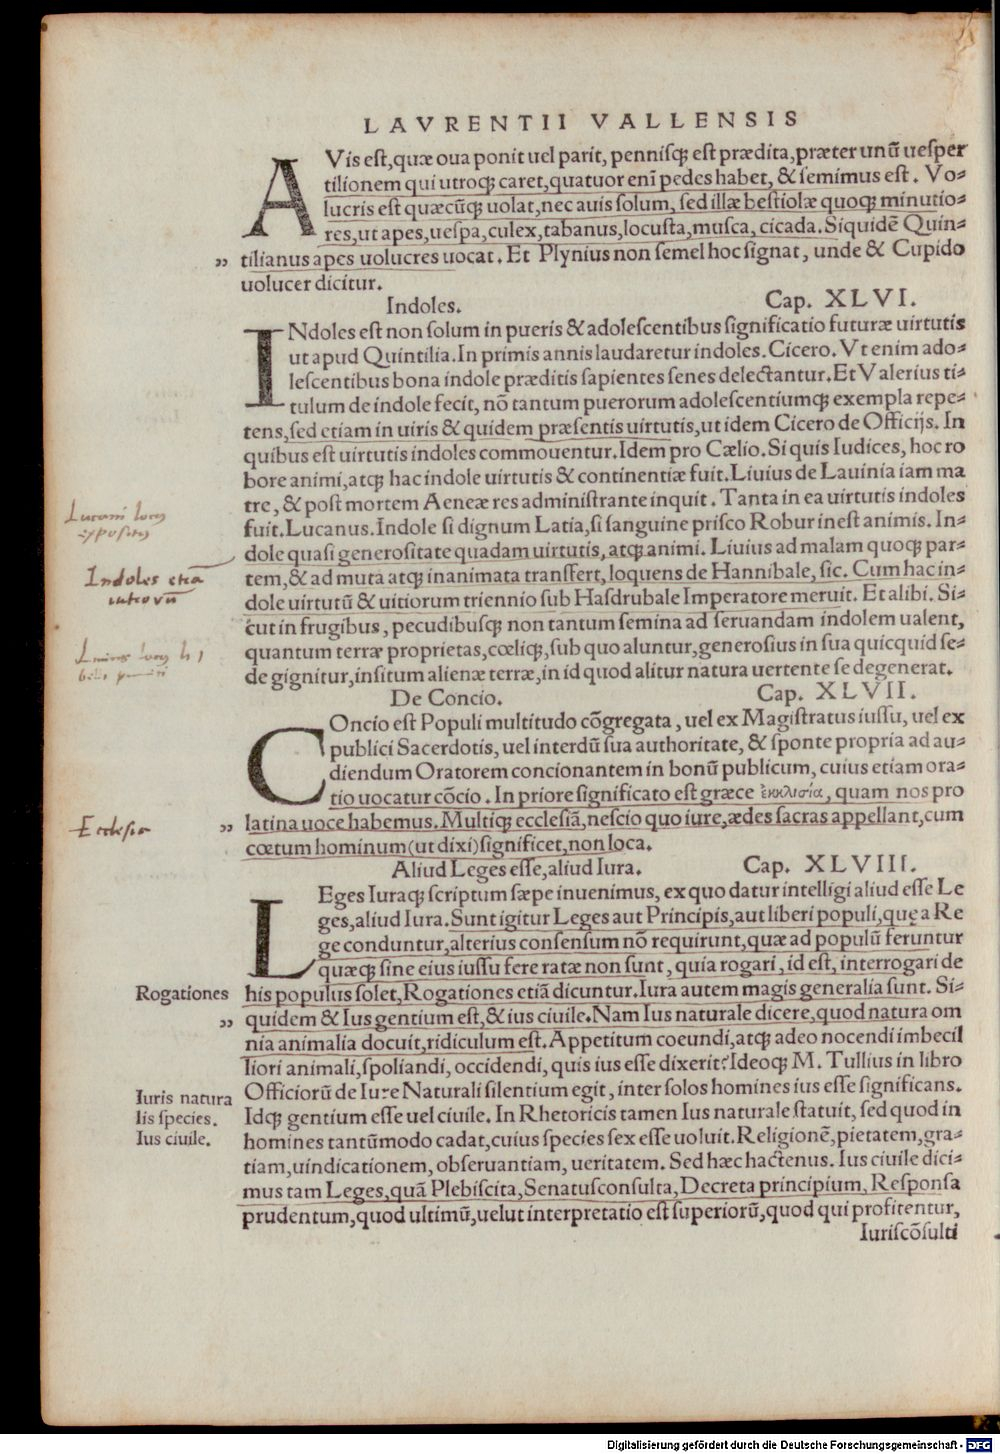 LAVRENTII VALLENSIS
AVis est, quæ oua ponit uel parit, pennisq; est prædita, præter unũ uesper
tilionem qui utroq; caret, quatuor enĩ pedes habet, & semimus est. Vo-
lucris est quæcũq; uolat, nec auis solum, sed illæ bestiolæ quoq; minutio-
res, ut apes, uespa, culex, tabanus, locusta, musca, cicada. Siquidẽ Quin-
„ tilianus apes uolucres uocat. Et Plynius non semel hoc signat, unde & Cupido
uolucer dicitur.
Indoles. Cap. XLVI.
INdoles est non solum in pueris & adolescentibus significatio futuræ uirtutis
ut apud Quintilia. In primis annis laudaretur indoles. Cicero. Vt enim ado-
lescentibus bona indole præditis sapientes senes delectantur. Et Valerius ti-
tulum de indole fecit, nõ tantum puerorum adolescentiumq; exempla repe-
tens, sed etiam in uiris & quidem præsentis uirtutis, ut idem Cicero de Officijs. In
quibus est uirtutis indoles commouentur. Idem pro Cælio. Si quis Iudices, hoc ro
bore animi, atq; hac indole uirtutis & continentiæ fuit. Liuius de Lauinia iam ma
tre, & post mortem Aeneæ res administrante inquit. Tanta in ea uirtutis indoles
Lucani locus
expositus
fuit. Lucanus. Indole si dignum Latia, si sanguine prisco Robur inest animis. In-
dole quasi generositate quadam uirtutis, atq; animi. Liuius ad malam quoq; par-
Indoles etiã
tem, & ad muta atq; inanimata transfert, loquens de Hannibale, sic. Cum hac in-
dole uirtutũ & uitiorum triennio sub Hasdrubale Imperatore meruit. Et alibi. Si-
cut in frugibus, pecudibusq; non tantum semina ad seruandam indolem ualent,
quantum terræ proprietas, cœliq;, sub quo aluntur, generosius in sua quicquid se-
de gignitur, insitum alienæ terræ, in id quod alitur natura uertente se degenerat.
De Concio. Cap. XLVII.
COncio est Populi multitudo cõgregata, uel ex Magistratus iussu, uel ex
publici Sacerdotis, uel interdũ sua authoritate, & sponte propria ad au-
diendum Oratorem concionantem in bonũ publicum, cuius etiam ora-
tio uocatur cõcio. In priore significato est græce ἐκκλισία, quam nos pro
Ecclesia
„ latina uoce habemus. Multiq; ecclesiã, nescio quo iure, ædes sacras appellant, cum
cœtum hominum (ut dixi) significet, non loca.
Aliud Leges esse, aliud Iura. Cap. XLVIII.
LEges Iuraq; scriptum sæpe inuenimus, ex quo datur intelligi aliud esse Le
ges, aliud Iura. Sunt igitur Leges aut Principis, aut liberi populi, quę a Re
ge conduntur, alterius consensum nõ requirunt, quæ ad populũ feruntur
quæq; sine eius iussu fere ratæ non sunt, quia rogari, id est, interrogari de
Rogationes
his populus solet, Rogationes etiã dicuntur. Iura autem magis generalia sunt. Si-
„ quidem & Ius gentium est, & ius ciuile. Nam Ius naturale dicere, quod natura om
nia animalia docuit, ridiculum est. Appetitum coeundi, atq; adeo nocendi imbecil
liori animali, spoliandi, occidendi, quis ius esse dixerit? Ideoq; M. Tullius in libro
Officiorũ de Iure Naturali silentium egit, inter solos homines ius esse significans.
Iuris natura
lis species.
Ius ciuile.
Idq; gentium esse uel ciuile. In Rhetoricis tamen Ius naturale statuit, sed quod in
homines tantũmodo cadat, cuius species sex esse uoluit. Religionẽ, pietatem, gra-
tiam, uindicationem, obseruantiam, ueritatem. Sed hæc hactenus. Ius ciuile dici-
mus tam Leges, quã Plebiscita, Senatusconsulta, Decreta principium, Responsa
prudentum, quod ultimũ, uelut interpretatio est superiorũ, quod qui profitentur,
Iuriscõsulti
Digitalisierung gefördert durch die Deutsche Forschungsgemeinschaft - DFG